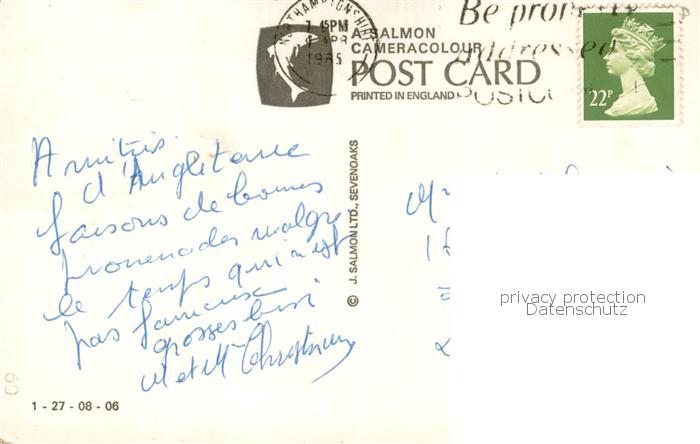 NORTHAMPTONSHIRE
7 15PM
9 APR
1985
Be properly
addressed
POSTCO
A SALMON
CAMERACOLOUR
POST CARD
PRINTED IN ENGLAND
22P
Amitiés
d'Angleterre
faisons de bonnes
promenades malgré
le temps qui n'est
pas fameux
grosses bises
M et Mme
© J. SALMON LTD., SEVENOAKS
privacy protection
Datenschutz
60
1 - 27 - 08 - 06